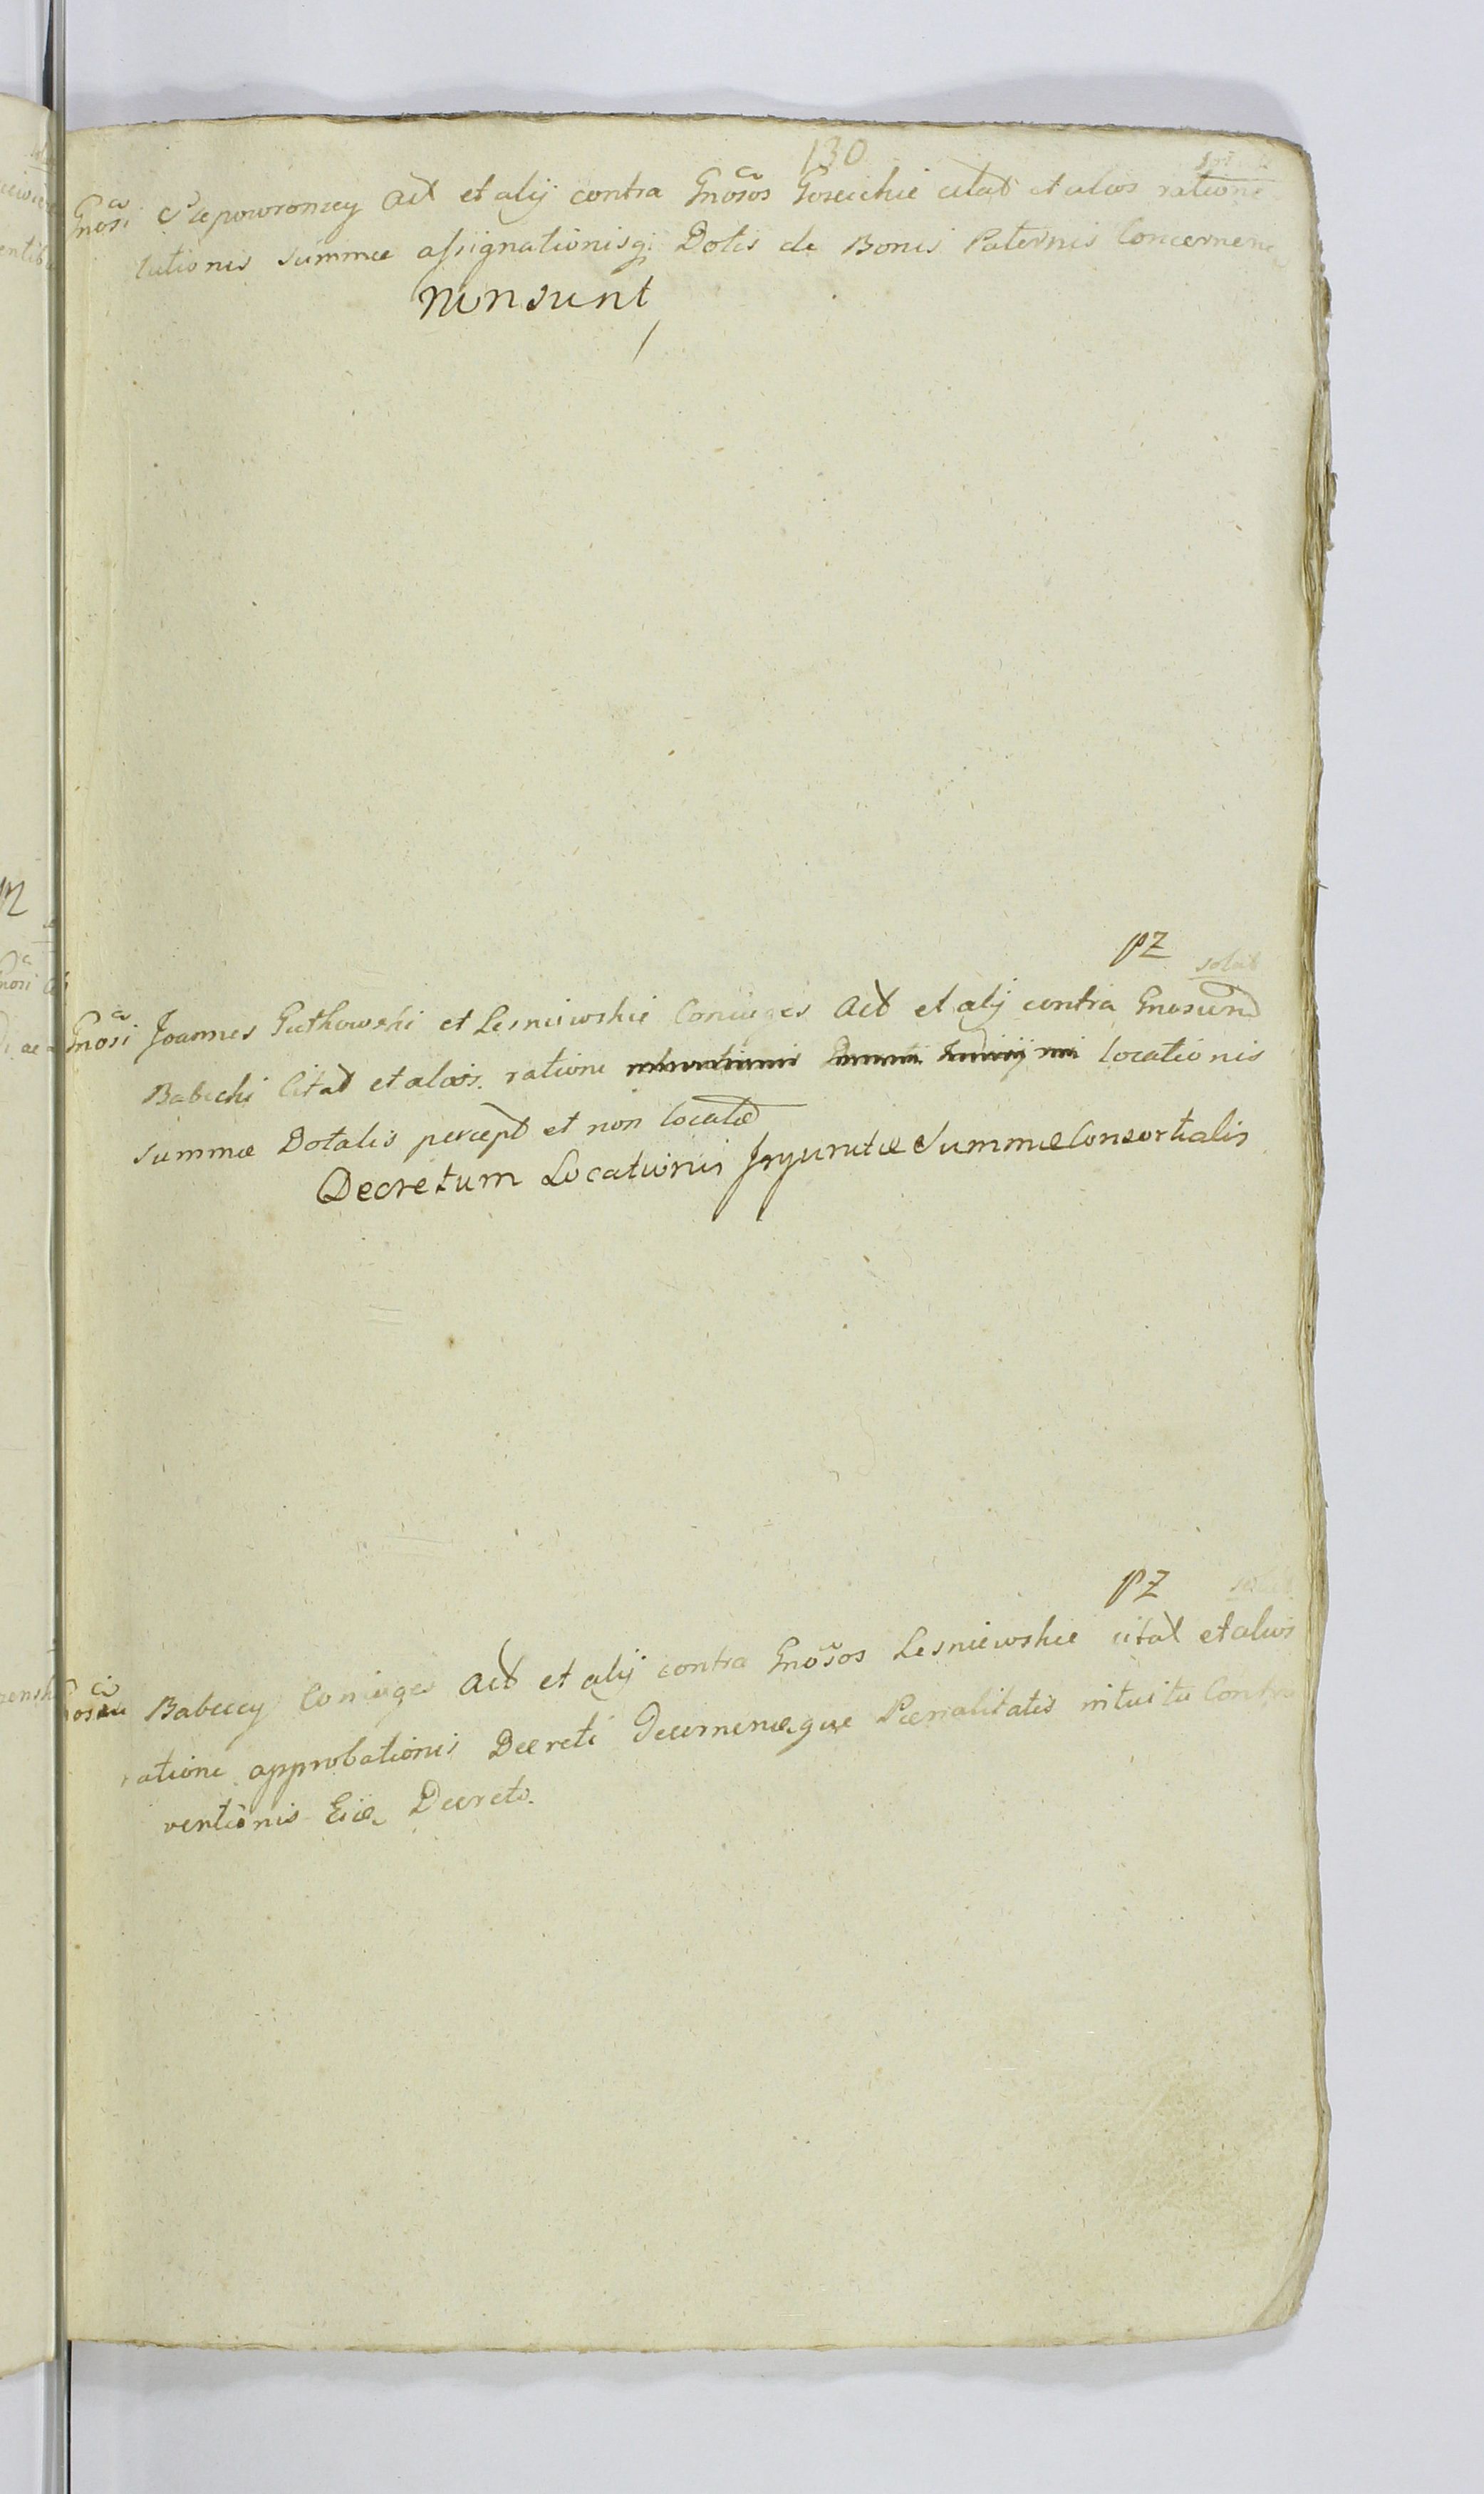 130
Gnosi Slepowronscy Act et alij contra Gnosos Gosickie citat et alios ratione
lutionis summae assignationisq; Dotis de Bonis Paternis Concernen
Non sunt
PZ solut
Gnosi Joannes Gutkowski et Lesniewskie Coniuges Act et alij contra Gnosum
Babecki Citat et alios ratione locationis
summae Dotalis percept et non locatae
Decretum Locationis Injunctae Summae Consortialis
PZ solut
Babeccy Coniuges Act et alij contra Gnosos Lesniewskie citat et alios
ratione approbationis Decreti Decernendaeque Paenalitatis intuitu Contra
ventionis Eidem Decreto.